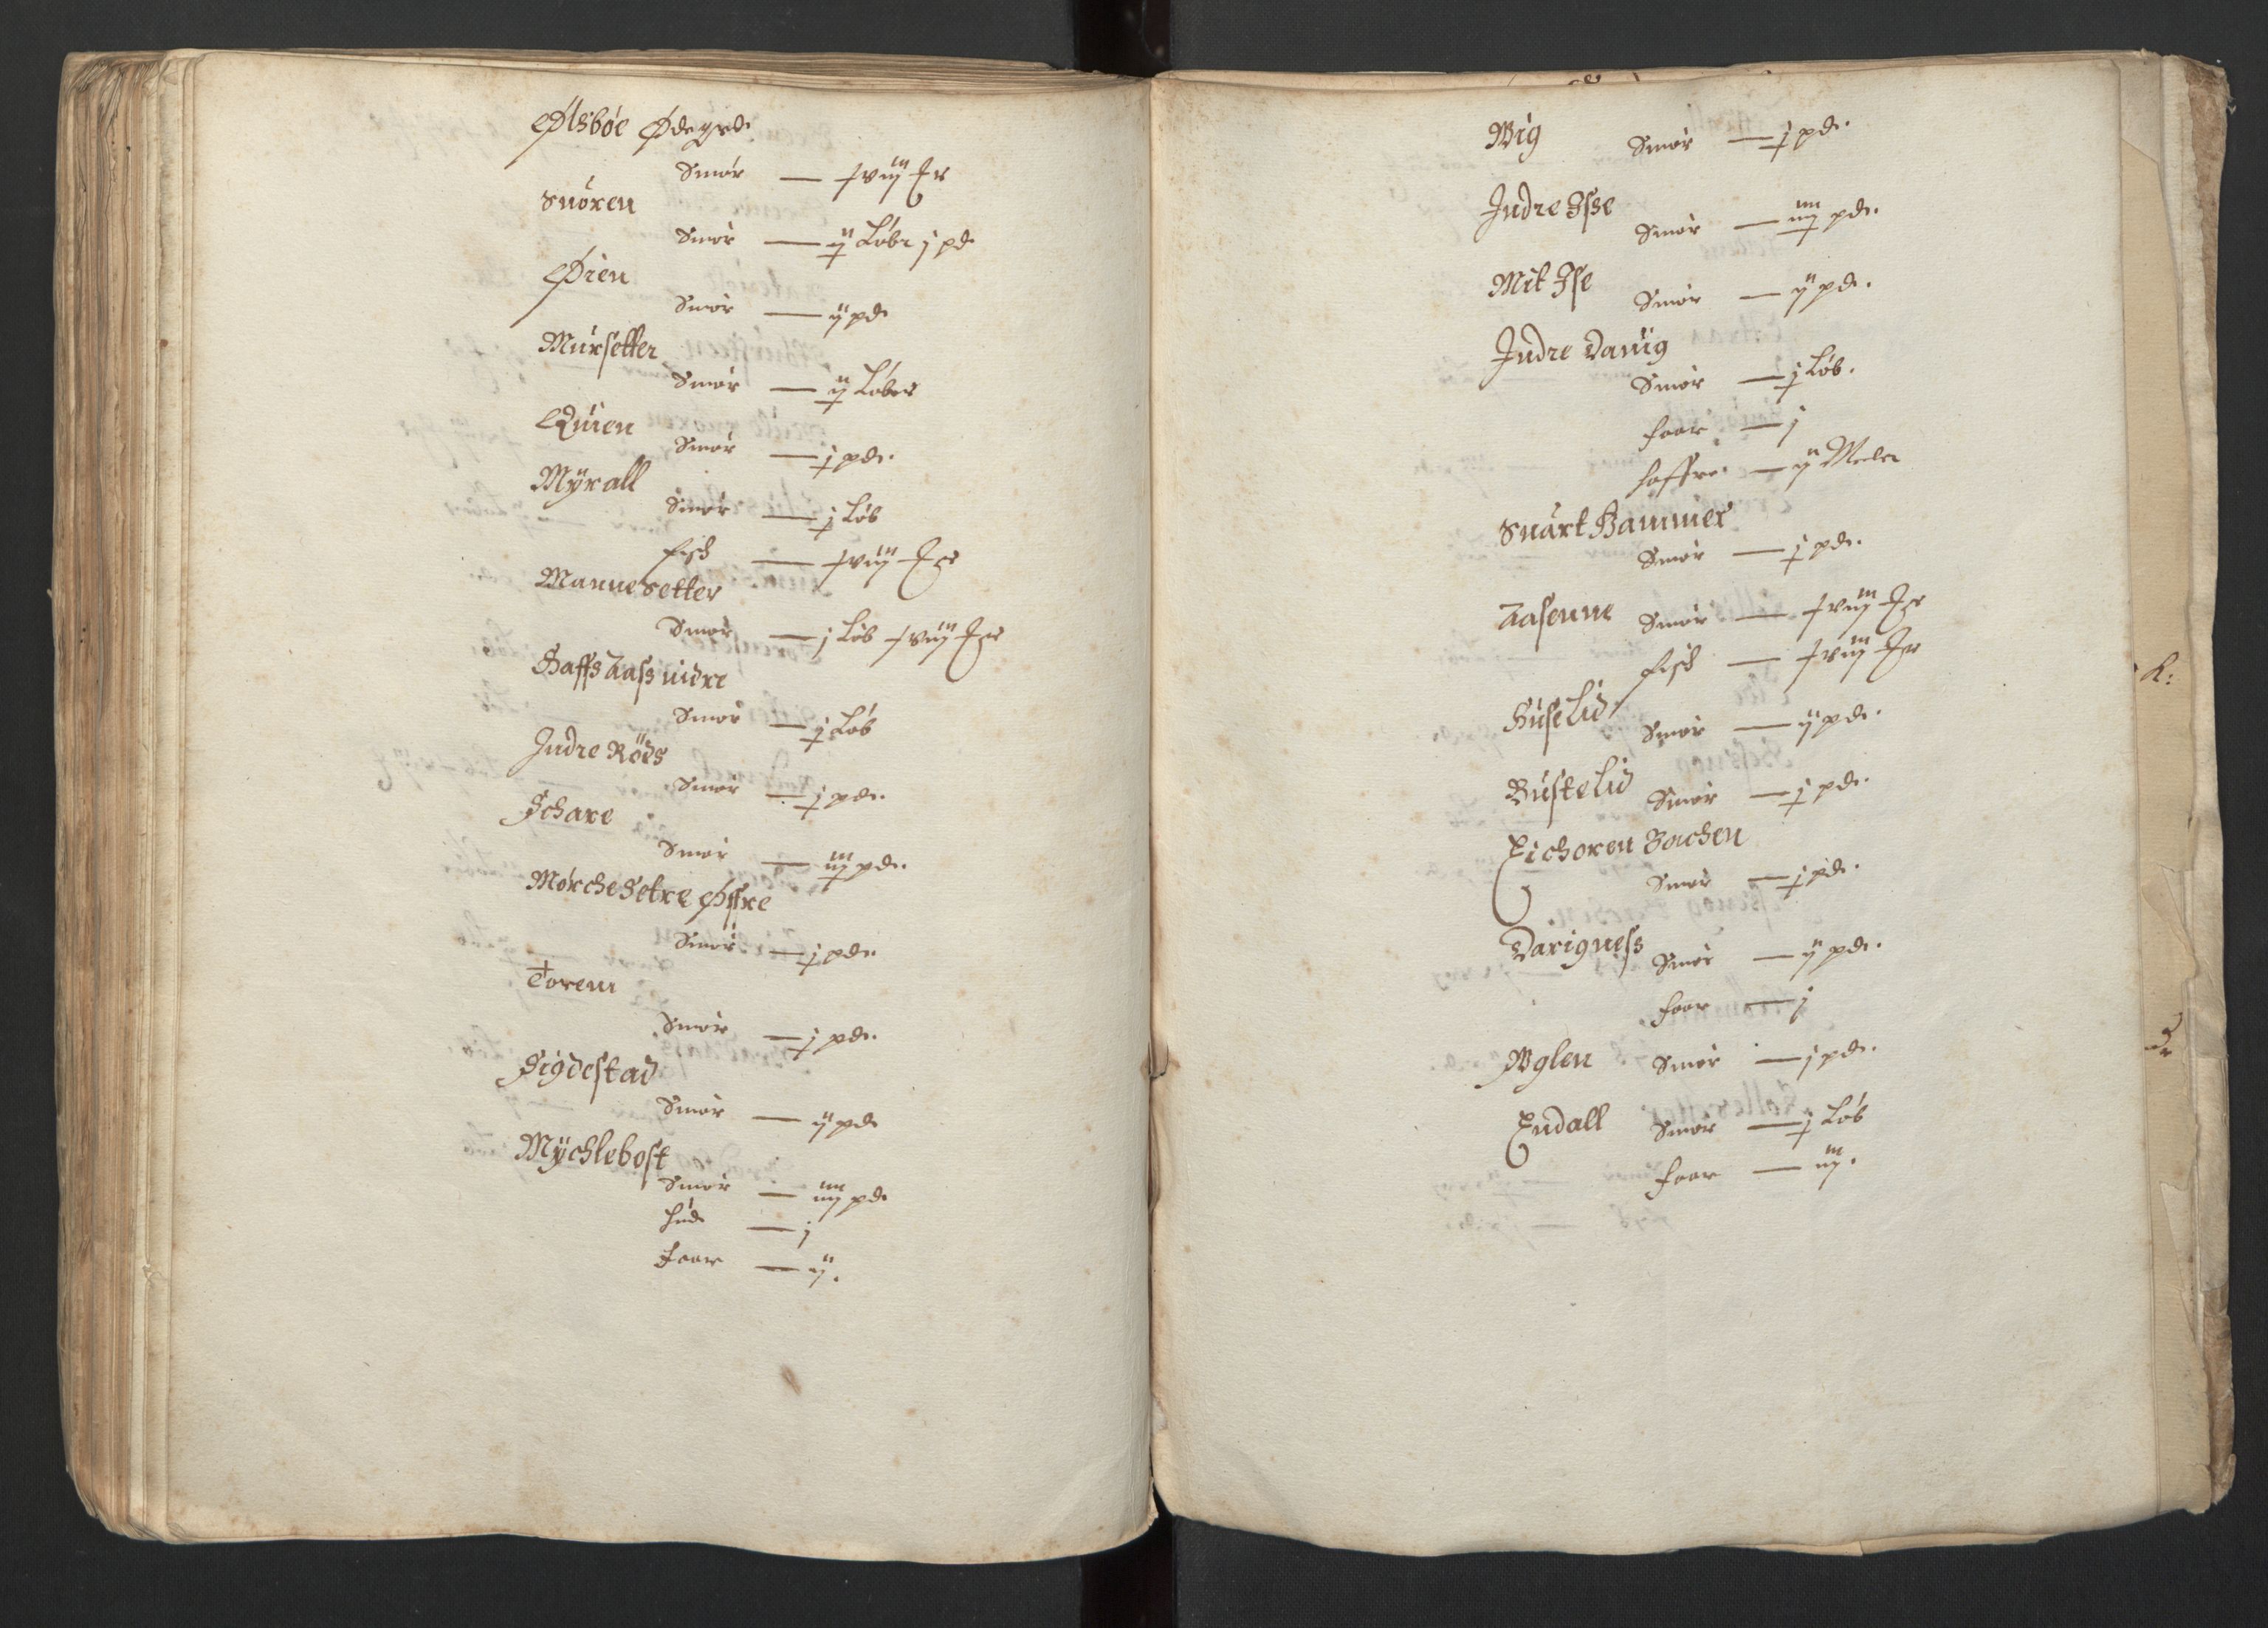 Ølsbøe Ødegrd.
Smør — xviij Er
Snøren
Smør — ij Løbr j pd
Øien
Smør — ij pd
Mursetter
Smør — ij Løber
Quien
Smør — j pd.
Myrall
Smør — j Løb
Fisch — xviij Er
Mannesetter
Smør — j Løb xviij Er
Haffs Aass nidre
Smør — j Løb
Indre Röds
Smør — j pd.
Schare
Smør — iij pd.
Mørche Setre Øffre
Smør — j pd.
Torem
Smør — j pd.
Sigdestad
Smør — ij pd
Mychlebost
Smør — iiij pd
Hud — j
Faar — ij.
Wig Smør — j pd.
Indre Isse
Smør — iiij pd.
Mit Ise
Smør — ij pd.
Indre Dauig
Smør — j Løb.
Faar — j
Haffre — ij Meler
Suart Hammer
Smør — j pd.
Aasenne Smør — xviij Er
Fisch — xviij Er
Huselid Smør — ij pd.
Bustelid Smør — j pd.
Eichoren Bachen
Smør — j pd.
Darigness Smør — ij pd.
Faar — j
Wglen Smør — j pd.
Endall Smør — j Løb
Faar — iij.
R: